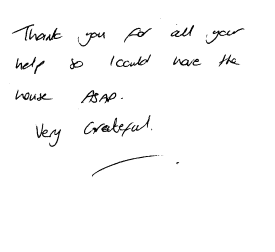 Thank you for all your
help so I could have the
house ASAP.
Very Grateful.